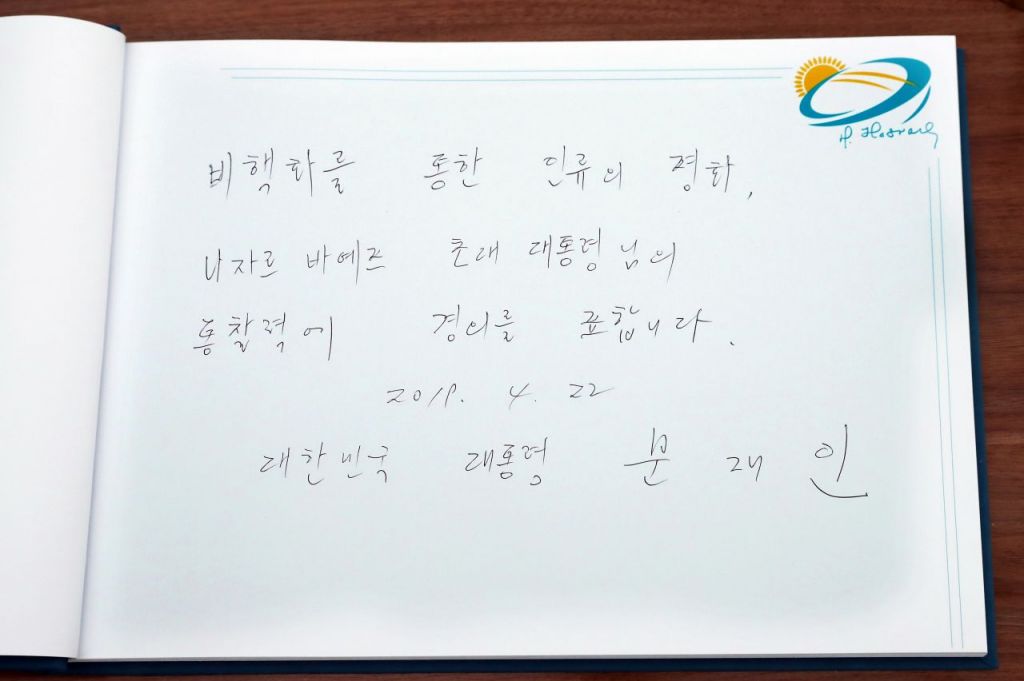 비핵화를 통한 인류의 평화,
나자르바예프 초대 대통령님의
통찰력에 경의를 표합니다.
2019. 4. 22
대한민국 대통령 문 재 인